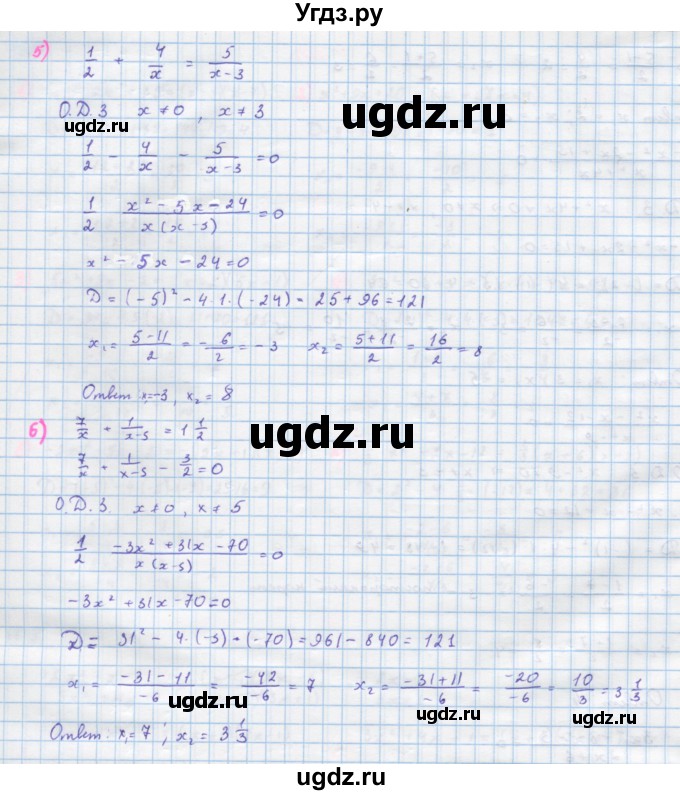 Угдз.ру
5) 1/2 + 4/x = 5/(x-3)
О.Д.З x ≠ 0 , x ≠ 3
ugdz.ru
ugdz.ru
ugdz.ru
1/2 - 4/x - 5/(x-3) = 0
1/2 (x² - 5x - 24)/(x(x-3)) = 0
x² - 5x - 24 = 0
D = (-5)² - 4·1·(-24) = 25 + 96 = 121
x₁ = (5-11)/2 = -6/2 = -3 x₂ = (5+11)/2 = 16/2 = 8
ugdz.ru
Ответ x₁=-3, x₂ = 8
ugdz.ru
6) 7/x + 1/(x-5) = 1 1/2
ugdz.ru
7/x + 1/(x-5) - 3/2 = 0
О.Д.З. x ≠ 0, x ≠ 5
ugdz.ru
1/2 (-3x² + 31x - 70)/(x(x-5)) = 0
-3x² + 31x - 70 = 0
ugdz.ru
D = 31² - 4·(-3)·(-70) = 961 - 840 = 121
x₁ = (-31-11)/-6 = -42/-6 = 7 x₂ = (-31+11)/-6 = -20/-6 = 10/3 = 3 1/3
ugdz.ru
ugdz.ru
Ответ. x₁=7 ; x₂ = 3 1/3
ugdz.ru